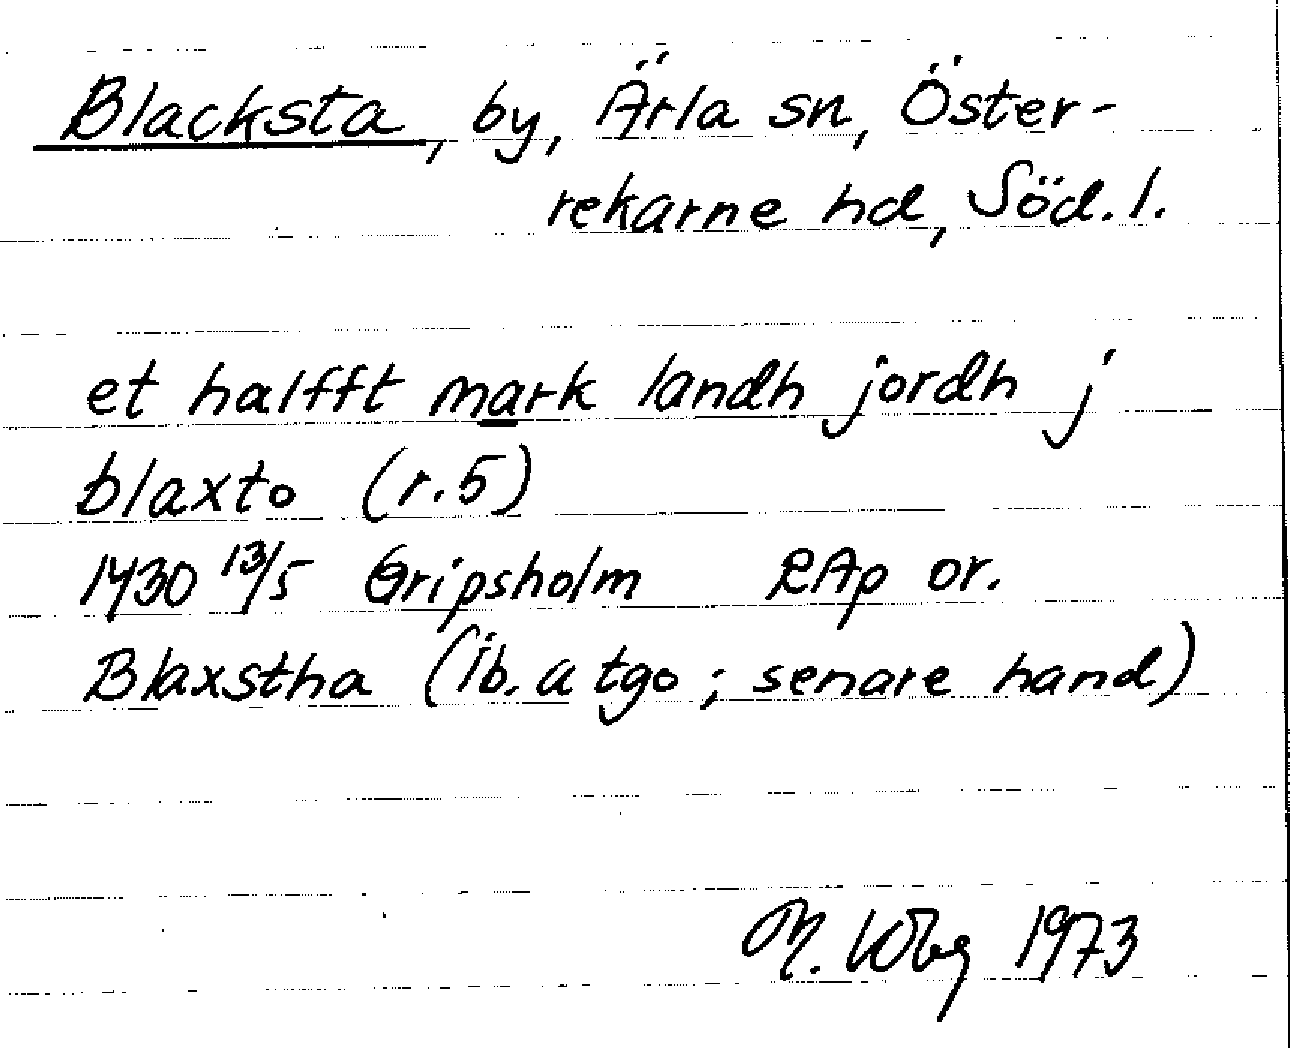 Blacksta, by, Ärla sn, Öster-
rekarne hd, Söd.l.
et halfft mark landh jordh j
blaxto (r.5)
1430 13/5 Gripsholm RAp or.
Blaxstha (ib. a tgo; senare hand)
M. Wbg 1973